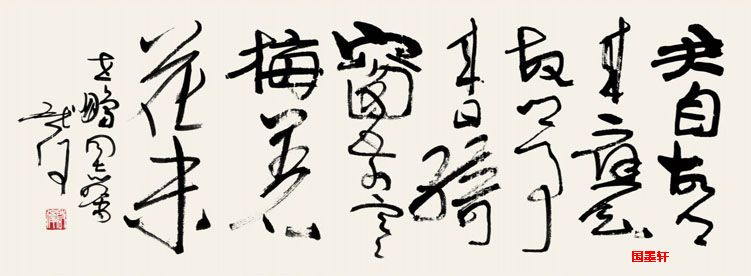 君自故乡
来应知
故乡事
来日绮
窗前寒
梅著
花未
志鹏同志属
国墨轩